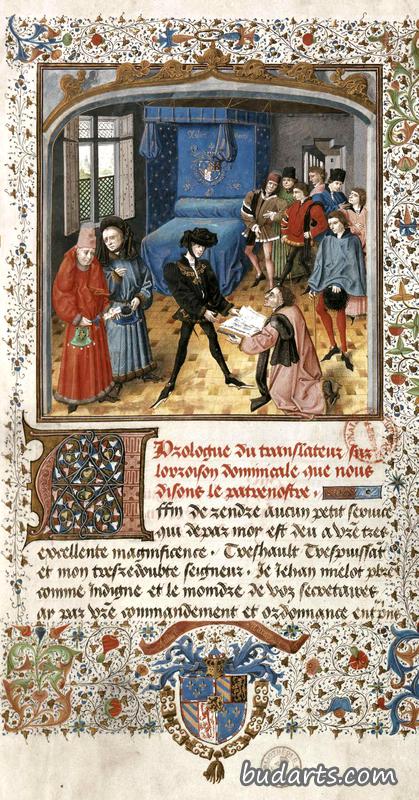 Prologue du translateur sur
lorroison dominicale que nous
disons le patrenostre.
Affin de rendre aucun petit service
qui de par moy est deu a vr̄e tres
excellente magnificence. Treshault Trespuissāt
et mon tresredoubte seigneur. Je Jehan mielot pbr̄e
comme indigne et le moindre de voz secretaires
ay par vr̄e commandement et ordonnance
budarts.com